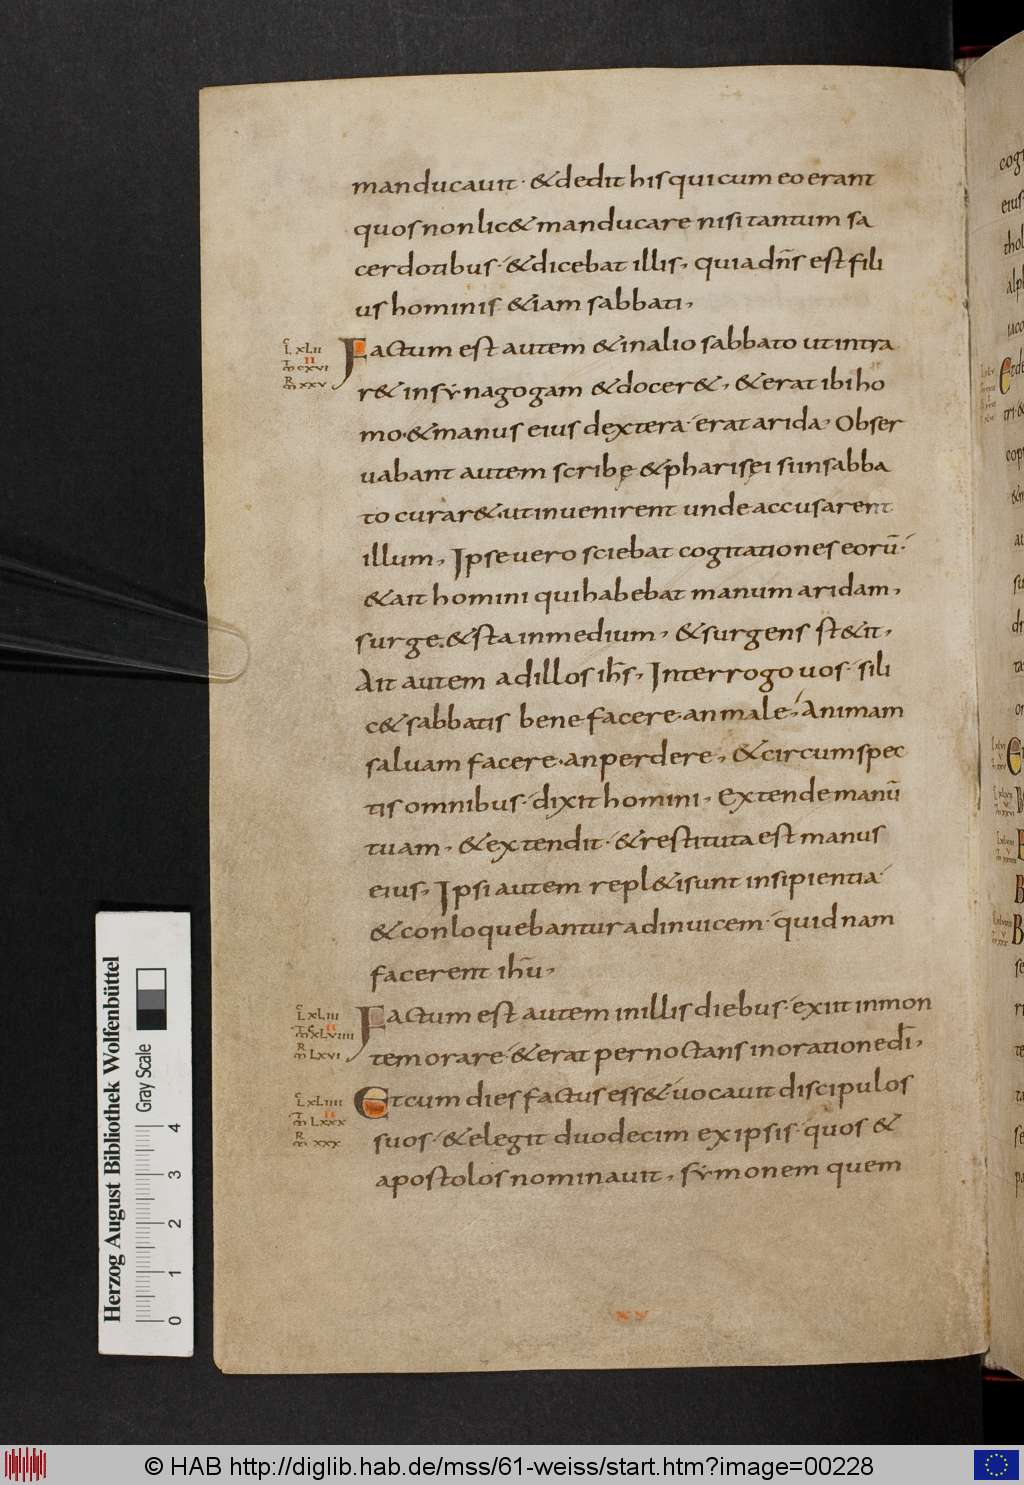 manducauit · & dedit his qui cum eo erant
quos non lic& manducare nisi tantum sa
cerdotibus · & dicebat illis, quia dn̄s est fili
us hominis &iam sabbati,
Factum est autem & in alio sabbato ut intra
r& in synagogam & docer&, & erat ibi ho
mo · & manus eius dextera erat arida, Obser
uabant autem scribę & pharisęi si in sabba
to curar& · ut inuenirent unde accusarent
illum, Ipse uero sciebat cogitationes eorū ·
& ait homini qui habebat manum aridam,
surge · & sta in medium, & surgens st&it,
Ait autem ad illos ih̄s, Interrogo uos · si li
c& sabbatis bene facere · an male, Animam
saluam facere · an perdere, & circumspec
tis omnibus · dixit homini, Extende manū
tuam, & extendit · & restituta est manus
eius, Ipsi autem repl&i sunt insipientia
& conloquebantur ad inuicem · quid nam
facerent ih̄u,
Factum est autem in illis diebus · exiit in mon
tem orare · & erat pernoctans in oratione dī,
Et cum dies factus ess& uocauit discipulos
suos · & elegit duodecim ex ipsis · quos &
apostolos nominauit, symonem quem
C
L XLII
II
T
m CXVI
R
m XXV
C
L XLIII
II
R
m LXVI
C
L XLIIII
II
T
m LXXX
R
m XXX
XV
Herzog August Bibliothek Wolfenbüttel
Gray Scale
0 1 2 3 4
© HAB http://diglib.hab.de/mss/61-weiss/start.htm?image=00228